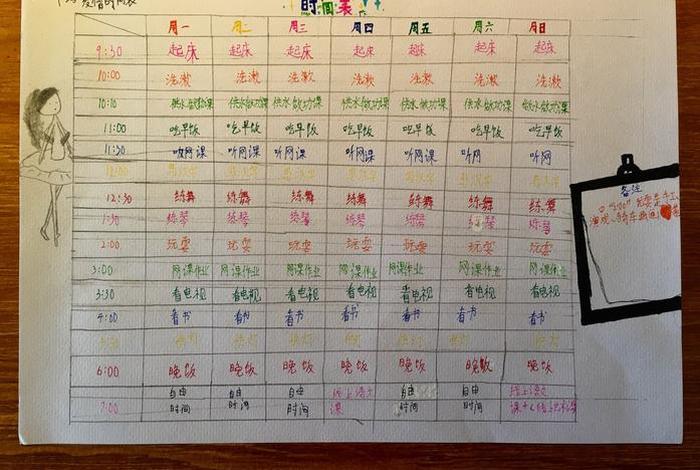 时间表
周一 周二 周三 周四 周五 周六 周日
9:30 起床 起床 起床 起床 起床 起床 起床
10:00 洗漱 洗漱 洗漱 洗漱 洗漱 洗漱 洗漱
10:10 供水做功课 供水做功课 供水做功课 供水做功课 供水做功课 供水做功课 供水做功课
11:00 吃早饭 吃早饭 吃早饭 吃早饭 吃早饭 吃早饭 吃早饭
11:30 听网课 听网课 听网课 听网课 听网课 听网 听网
12:30 练舞 练舞 练舞 练舞 练舞 练舞 练舞
1:30 练琴 练琴 练琴 练琴 练琴 练琴 练琴
2:00 玩耍 玩耍 玩耍 玩耍 玩耍 玩耍 玩耍
3:00 网课作业 网课作业 网课作业 网课作业 网课作业 网课作业 网课作业
3:30 看电视 看电视 看电视 看电视 看电视 看电视 看电视
4:00 看书 看书 看书 看书 看书 看书 看书
6:00 晚饭 晚饭 晚饭 晚饭 晚饭 晚饭 晚饭
自由 自由 自由 自由 自由
7:00 时间 时间 时间 课 时间 时间
备注